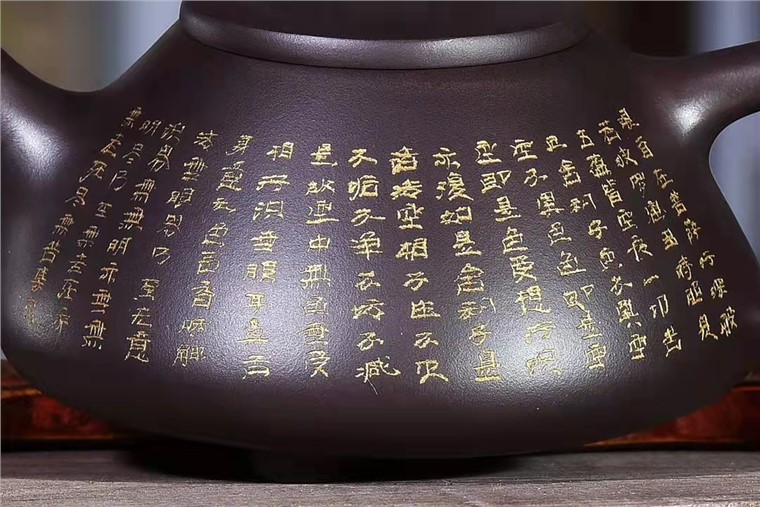 觀自在菩薩行深般
若波羅蜜多時照見
五蘊皆空度一切苦
厄舍利子色不異空
空不異色色即是空
空即是色受想行識
亦復如是舍利子是
諸法空相不生不滅
不垢不淨不增不減
是故空中無色無受
想行識無眼耳鼻舌
身意無色聲香味觸
法無眼界乃至無意
識界無無明亦無無
明盡乃至無老死亦
無老死盡無苦集